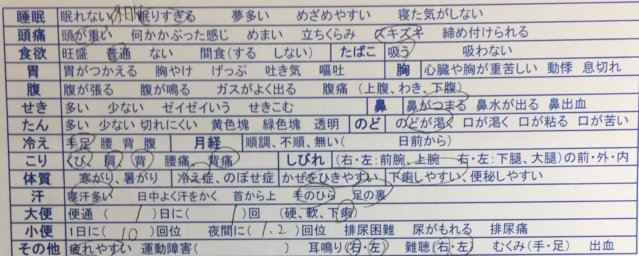 睡眠 眠れない 眠りすぎる 夢多い めざめやすい 寝た気がしない
頭痛 頭が重い 何かかぶった感じ めまい 立ちくらみ ズキズキ 締め付けられる
食欲 旺盛 普通 ない 間食(する しない) たばこ 吸う 吸わない
胃 胃がつかえる 胸やけ げっぷ 吐き気 嘔吐 胸 心臓や胸が重苦しい 動悸 息切れ
腹 腹が張る 腹が鳴る ガスがよく出る 腹痛 (上腹、わき、下腹)
せき 多い 少ない ゼイゼイいう せきこむ 鼻 鼻がつまる 鼻水が出る 鼻出血
たん 多い 少ない 切れにくい 黄色塊 緑色塊 透明 のど のどが渇く 口が渇く 口が粘る 口が苦い
冷え 手足 腰 背 腹 月経 順調、不順、無い( 日前から)
こり くび、肩、背 腰痛、背痛 しびれ (右・左:前腕、上腕 ― 右・左:下腿、大腿)の前・外・内
体質 寒がり、暑がり 冷え症、のぼせ症 かぜをひきやすい 下痢しやすい、便秘しやすい
汗 寝汗多い 日中よく汗をかく 首から上 手のひら 足の裏
大便 便通 ( 1 )日に( 1 )回 (硬、軟、下痢)
小便 1日に( 10 )回位 夜間に( 1.2 )回位 排尿困難 尿がもれる 排尿痛
その他 疲れやすい 運動障害( ) 耳鳴り(右・左) 難聴(右・左) むくみ(手・足) 出血